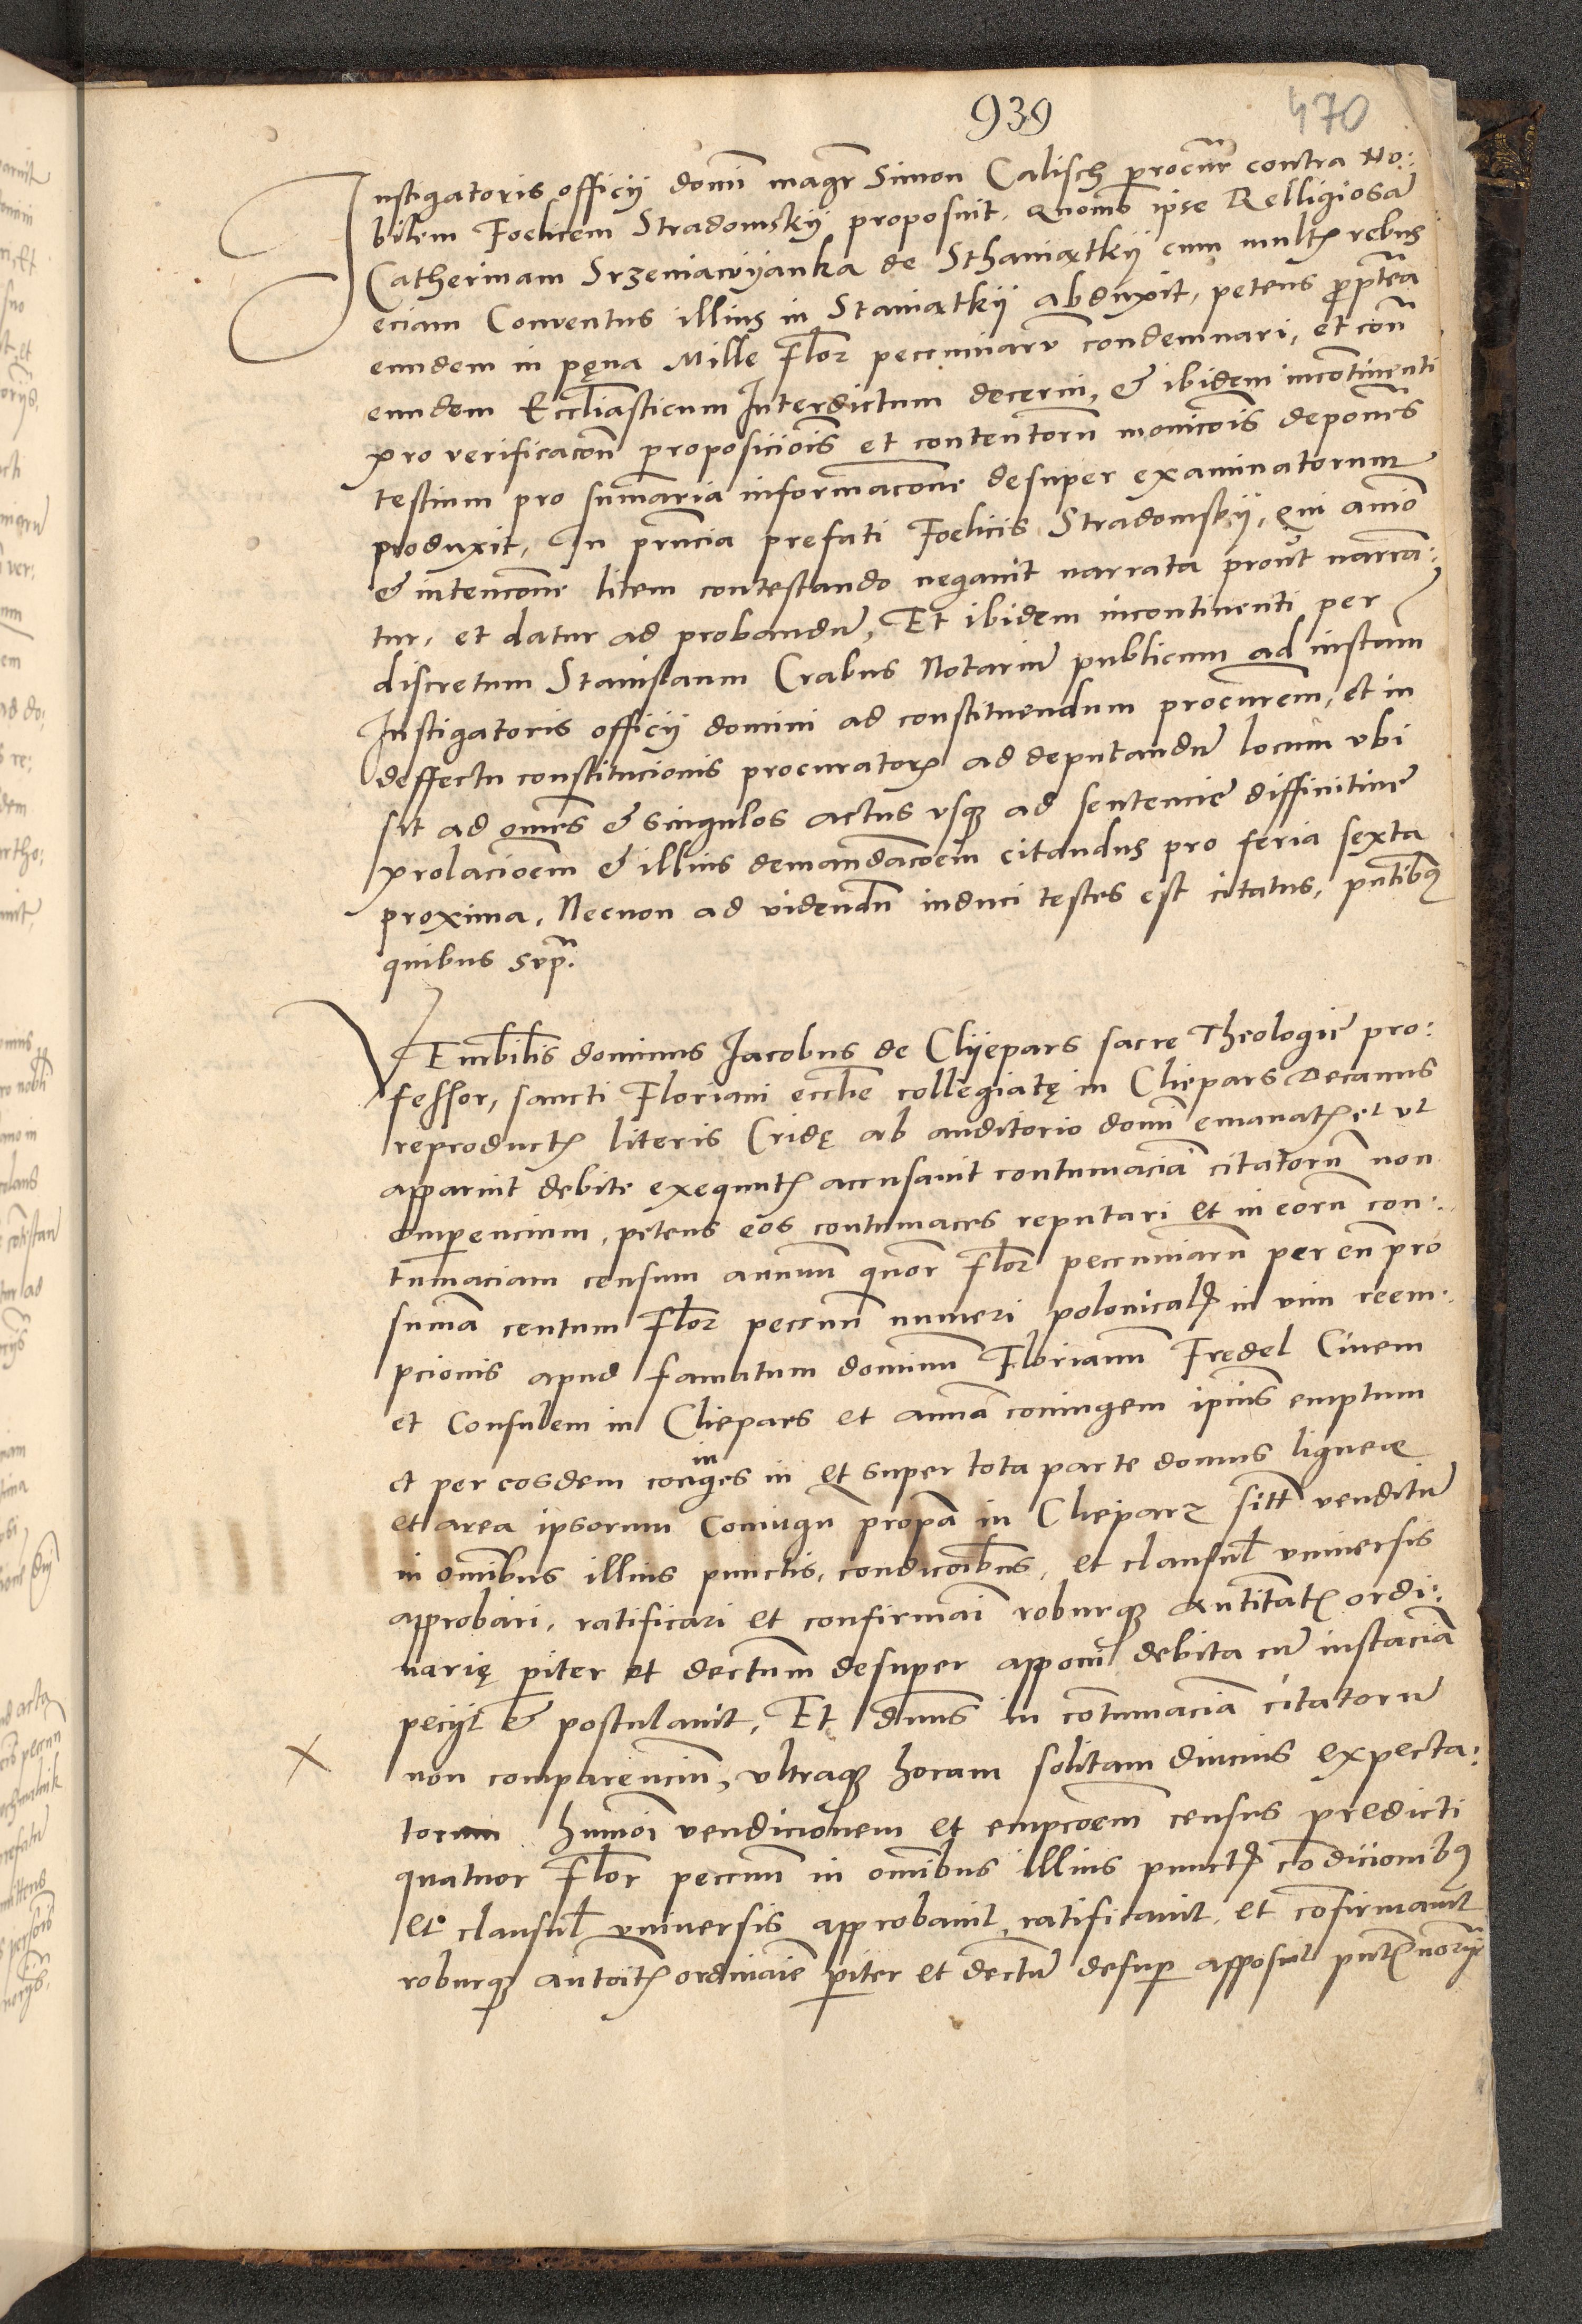 939
470
Instigatoris officij domi magr Simon Calisch procur contra No:
bilem Foelicem Stradomskij proposuit, quomo ipse Relligiosa
Catherinam Srzeniawijanka de Sthaniątkij cum mult rebus
eciam Conventus illius in Staniątkij abduxit, petens propterea
eundem in pęna Mille Flor pecuniaru condemnari, et con
eundem Ecclesiasticum Interdictum decerni, & ibidem incontinenti
pro verificacon proposiciois et contentoru monicois deponens
testium pro sumaria informacone desuper examinatorum
produxit, In prncia prefati Foelicis Stradomskij, qui animo
& intencone litem contestando negauit narrata prout narran:
tur, et datur ad probandu, Et ibidem incontinenti per
discretum Stanislaum Crabus Notariu publicum ad instam
Instigatoris officij domini ad constituendum procurem, et in
deffectu constitucionis procurator ad deputandu locum vbi
sit ad omnes & singulos actus vsque ad sentencie diffinitiue
prolacioem & illius demandacoem citandus pro feria sexta
proxima, Necnon ad videndu induci testes est citatus, pntibus
quibus supra.
VEnerbilis dominus Jacobus de Clijepars sacre Theologie pro:
fessor, sancti Floriani ecclie collegiatę in Clepars Decanus
reproduct literis Cridę ab auditorio domi emanat et vt
apparuit debite exequut accusauit contumacia citatoru non
comperencium, petens eos contumaces reputari et in eoru con:
tumaciam censum annuu quor Flor pecuniaru per eu pro
suma centum Flor pecun numeri polonical in vim reem:
pcionis apud famatum dominu Florianu Fredel Ciuem
et Consulem in Clepars et anna coniugem ipius emptum
et per eosdem coniuges in et super tota parte domus ligneæ
et area ipsorum coniugu propa in Clepars sitt venditu
in omibus illius punctis, condicoibus, et clausul vniuersis
approbari, ratificari et confirmari roburque autoritat ordi:
narię pariter et dectum desuper apponi debita cu instacia
pecijt & postulauit, Et dnus in contumacia citatoru
non comparenciu, vltraque horam solitam diucius expecta:
torum humoi vendicionem et empcoem census predicti
quatuor Flor pecun in omibus illius punct condicionibus
et clausul vniuersis approbauit, ratificauit, et confirmauit
roburque autoitat ordinaie pariter et dectu desup apposuit pnt